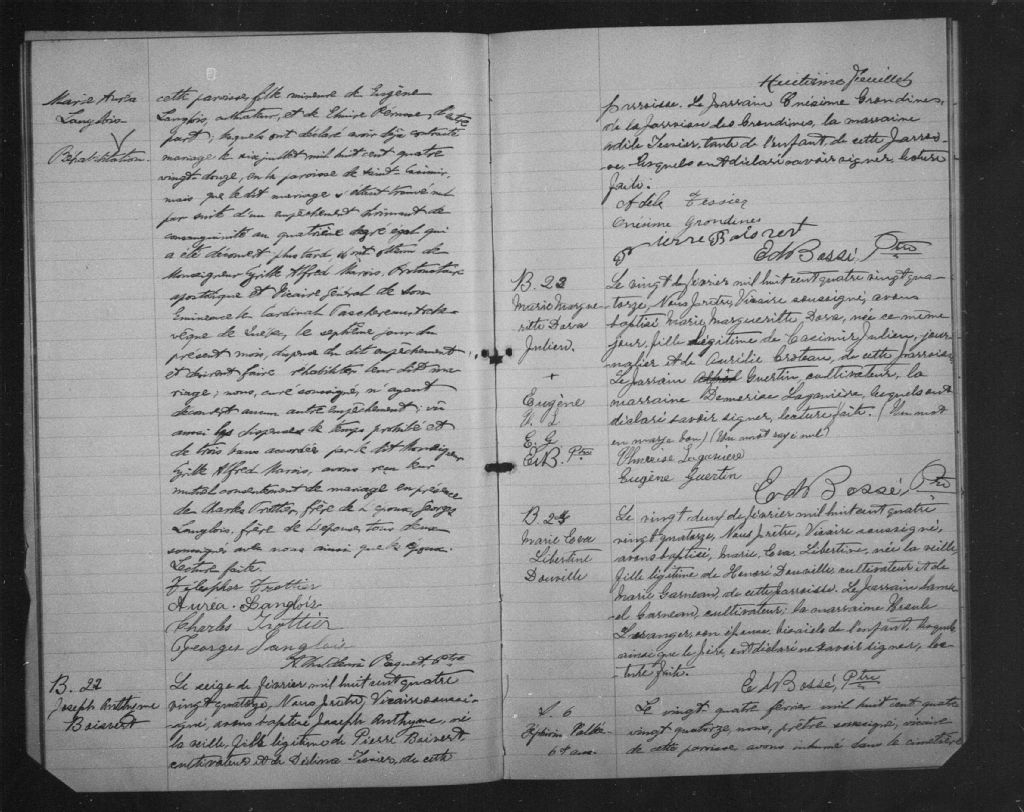 Marie Auréa
Langlois
Réhabilitation
cette paroisse, fille mineure de Eugène
Langlois, cultivateur, et de d'autre
part; lesquels ont déclaré avoir déjà contracté
mariage le six juillet mil huit cent quatre
vingt douze, en la paroisse de Saint Casimir,
mais que le dit mariage s'étant trouvé nul
par suite d'un empêchement dirimant de
consanguinité au quatrième degré égal qui
a été découvert plus tard, ont obtenu de
Monseigneur Cyrille Alfred Marois, Protonotaire
apostolique et Vicaire Général de Son
Eminence le Cardinal Taschereau, Arche-
vêque de Québec, le septième jour du
présent mois, dispense du dit empêchement
et doivent faire réhabiliter leur dit ma-
riage; nous, curé soussigné, n'ayant
découvert aucun autre empêchement; vu
aussi les dispenses de temps prohibé et
de trois bans accordées par le dit Monseigneur
Cyrille Alfred Marois, avons reçu leur
mutuel consentement de mariage en présence
de Charles Trottier, frère de l'époux, Georges
Langlois, frère de l'épouse, tous deux
soussignés avec nous ainsi que les époux.
Lecture faite.
Télesphor Trottier
Auréa Langlois
Charles Trottier
Georges Langlois
Paquet, Ptre
B. 22
Joseph Anthyme
Boisvert
Le seize de février mil huit cent quatre
vingt quatorze, Nous Prêtre, Vicaire soussi-
gné, avons baptisé Joseph Anthyme, né
la veille, fils légitime de Pierre Boisvert,
cultivateur et de Délina Tessier, de cette
Huitième Feuillet
paroisse. Le parrain Onésime Grondines,
de la paroisse des Grondines, la marraine
Adèle Tessier, tante de l'enfant, de cette parois-
se. Lesquels ont déclaré savoir signer, lecture
faite.
Adèle Tessier
Onésime Grondines
Pierre Boisvert
Ed Bossé, Ptre
B. 23
Marie Margue-
ritte Dora
Julien.
+
Eugène
G. L.
E. G.
Ed B. Ptre
Le vingt de février mil huit cent quatre vingt qua-
torze, Nous Prêtre, Vicaire soussigné, avons
baptisé Marie Margueritte Dora, née ce même
jour, fille légitime de Casimir Julien, jour-
nalier et de Aurélie Croteau, de cette paroisse.
Le parrain Alfred Guertin, cultivateur, la
marraine Démerise Laganière, lesquels ont
déclaré savoir signer, lecture faite. (Un mot
en marge bon) (Un mot rayé nul)
Démerise Laganière
Eugène Guertin
Ed Bossé, Ptre
B. 24
Marie Eva
Libertine
Douville
Le vingt deux de février mil huit cent quatre
vingt quatorze, Nous Prêtre, Vicaire soussigné,
avons baptisé, Marie, Eva, Libertine, née la veille,
fille légitime de Henri Douville cultivateur et de
Marie Garneau, de cette paroisse. Le parrain Samu-
el Garneau, cultivateur; la marraine Ursule
Loranger, son épouse, bisaïeuls de l'enfant, lesquels
ainsi que le père, ont déclaré ne savoir signer, lec-
ture faite.
Ed Bossé, Ptre
S. 6
Zéphirin Vallée
61 ans.
Le vingt quatre février mil huit cent quatre
vingt quatorze, nous, prêtre soussigné, vicaire
de cette paroisse avons inhumé dans le cimetière